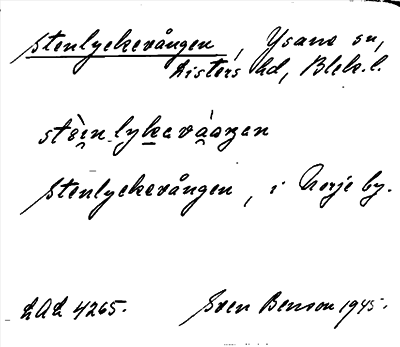 Stenlyckevången, Ysane sn,
Listers hd, Blek. l.
stèin lykevá̀ŋen
Stenlyckevången, i Norje by.
LAL 4265.
Sven Benson 1945.